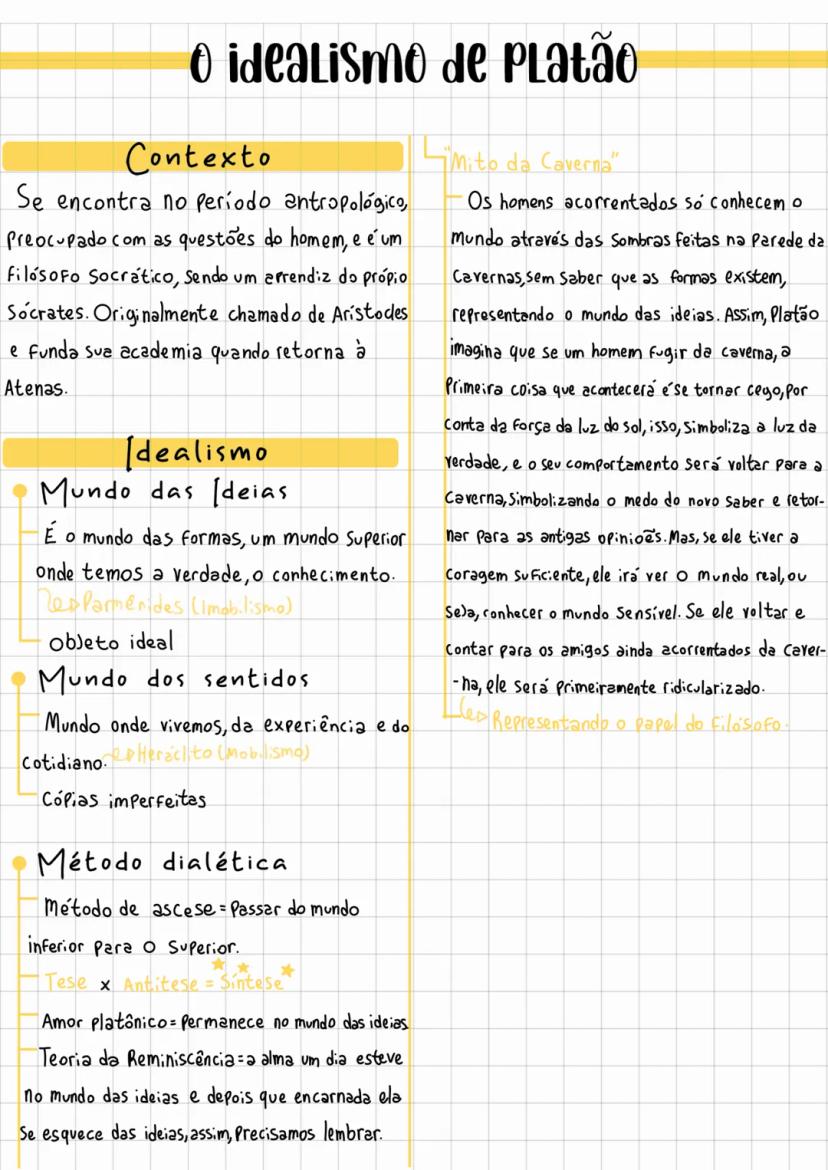 O idealismo de Platão
Contexto
Se encontra no período antropológico,
preocupado com as questões do homem, e é um
filósofo Socrático, sendo um aprendiz do própio
Sócrates. Originalmente chamado de Arístocles
e funda sua academia quando retorna à
Atenas.
Idealismo
Mundo das Ideias
É o mundo das formas, um mundo superior
onde temos a verdade, o conhecimento.
Parmênides (Imobilismo)
Objeto ideal
Mundo dos sentidos
Mundo onde vivemos, da experiência e do
cotidiano. Heráclito (Mobilismo)
Cópias imperfeitas
Método dialética
Método de ascese = Passar do mundo
inferior para o superior.
Tese x Antítese = Síntese
Amor platônico = Permanece no mundo das ideias
Teoria da Reminiscência = a alma um dia esteve
no mundo das ideias e depois que encarnada ela
se esquece das ideias, assim, Precisamos lembrar.
"Mito da Caverna"
Os homens acorrentados só conhecem o
mundo através das sombras feitas na parede da
Cavernas, sem saber que as formas existem,
representando o mundo das ideias. Assim, Platão
imagina que se um homem fugir da caverna, a
primeira coisa que acontecerá é se tornar cego, por
conta da força da luz do sol, isso, simboliza a luz da
verdade, e o seu comportamento será voltar para a
caverna, simbolizando o medo do novo saber e retor-
nar para as antigas opiniões. Mas, se ele tiver a
coragem suficiente, ele irá ver o mundo real, ou
seja, conhecer o mundo sensível. Se ele voltar e
contar para os amigos ainda acorrentados da caver-
-na, ele será primeiramente ridicularizado.
Representando o papel do filósofo.